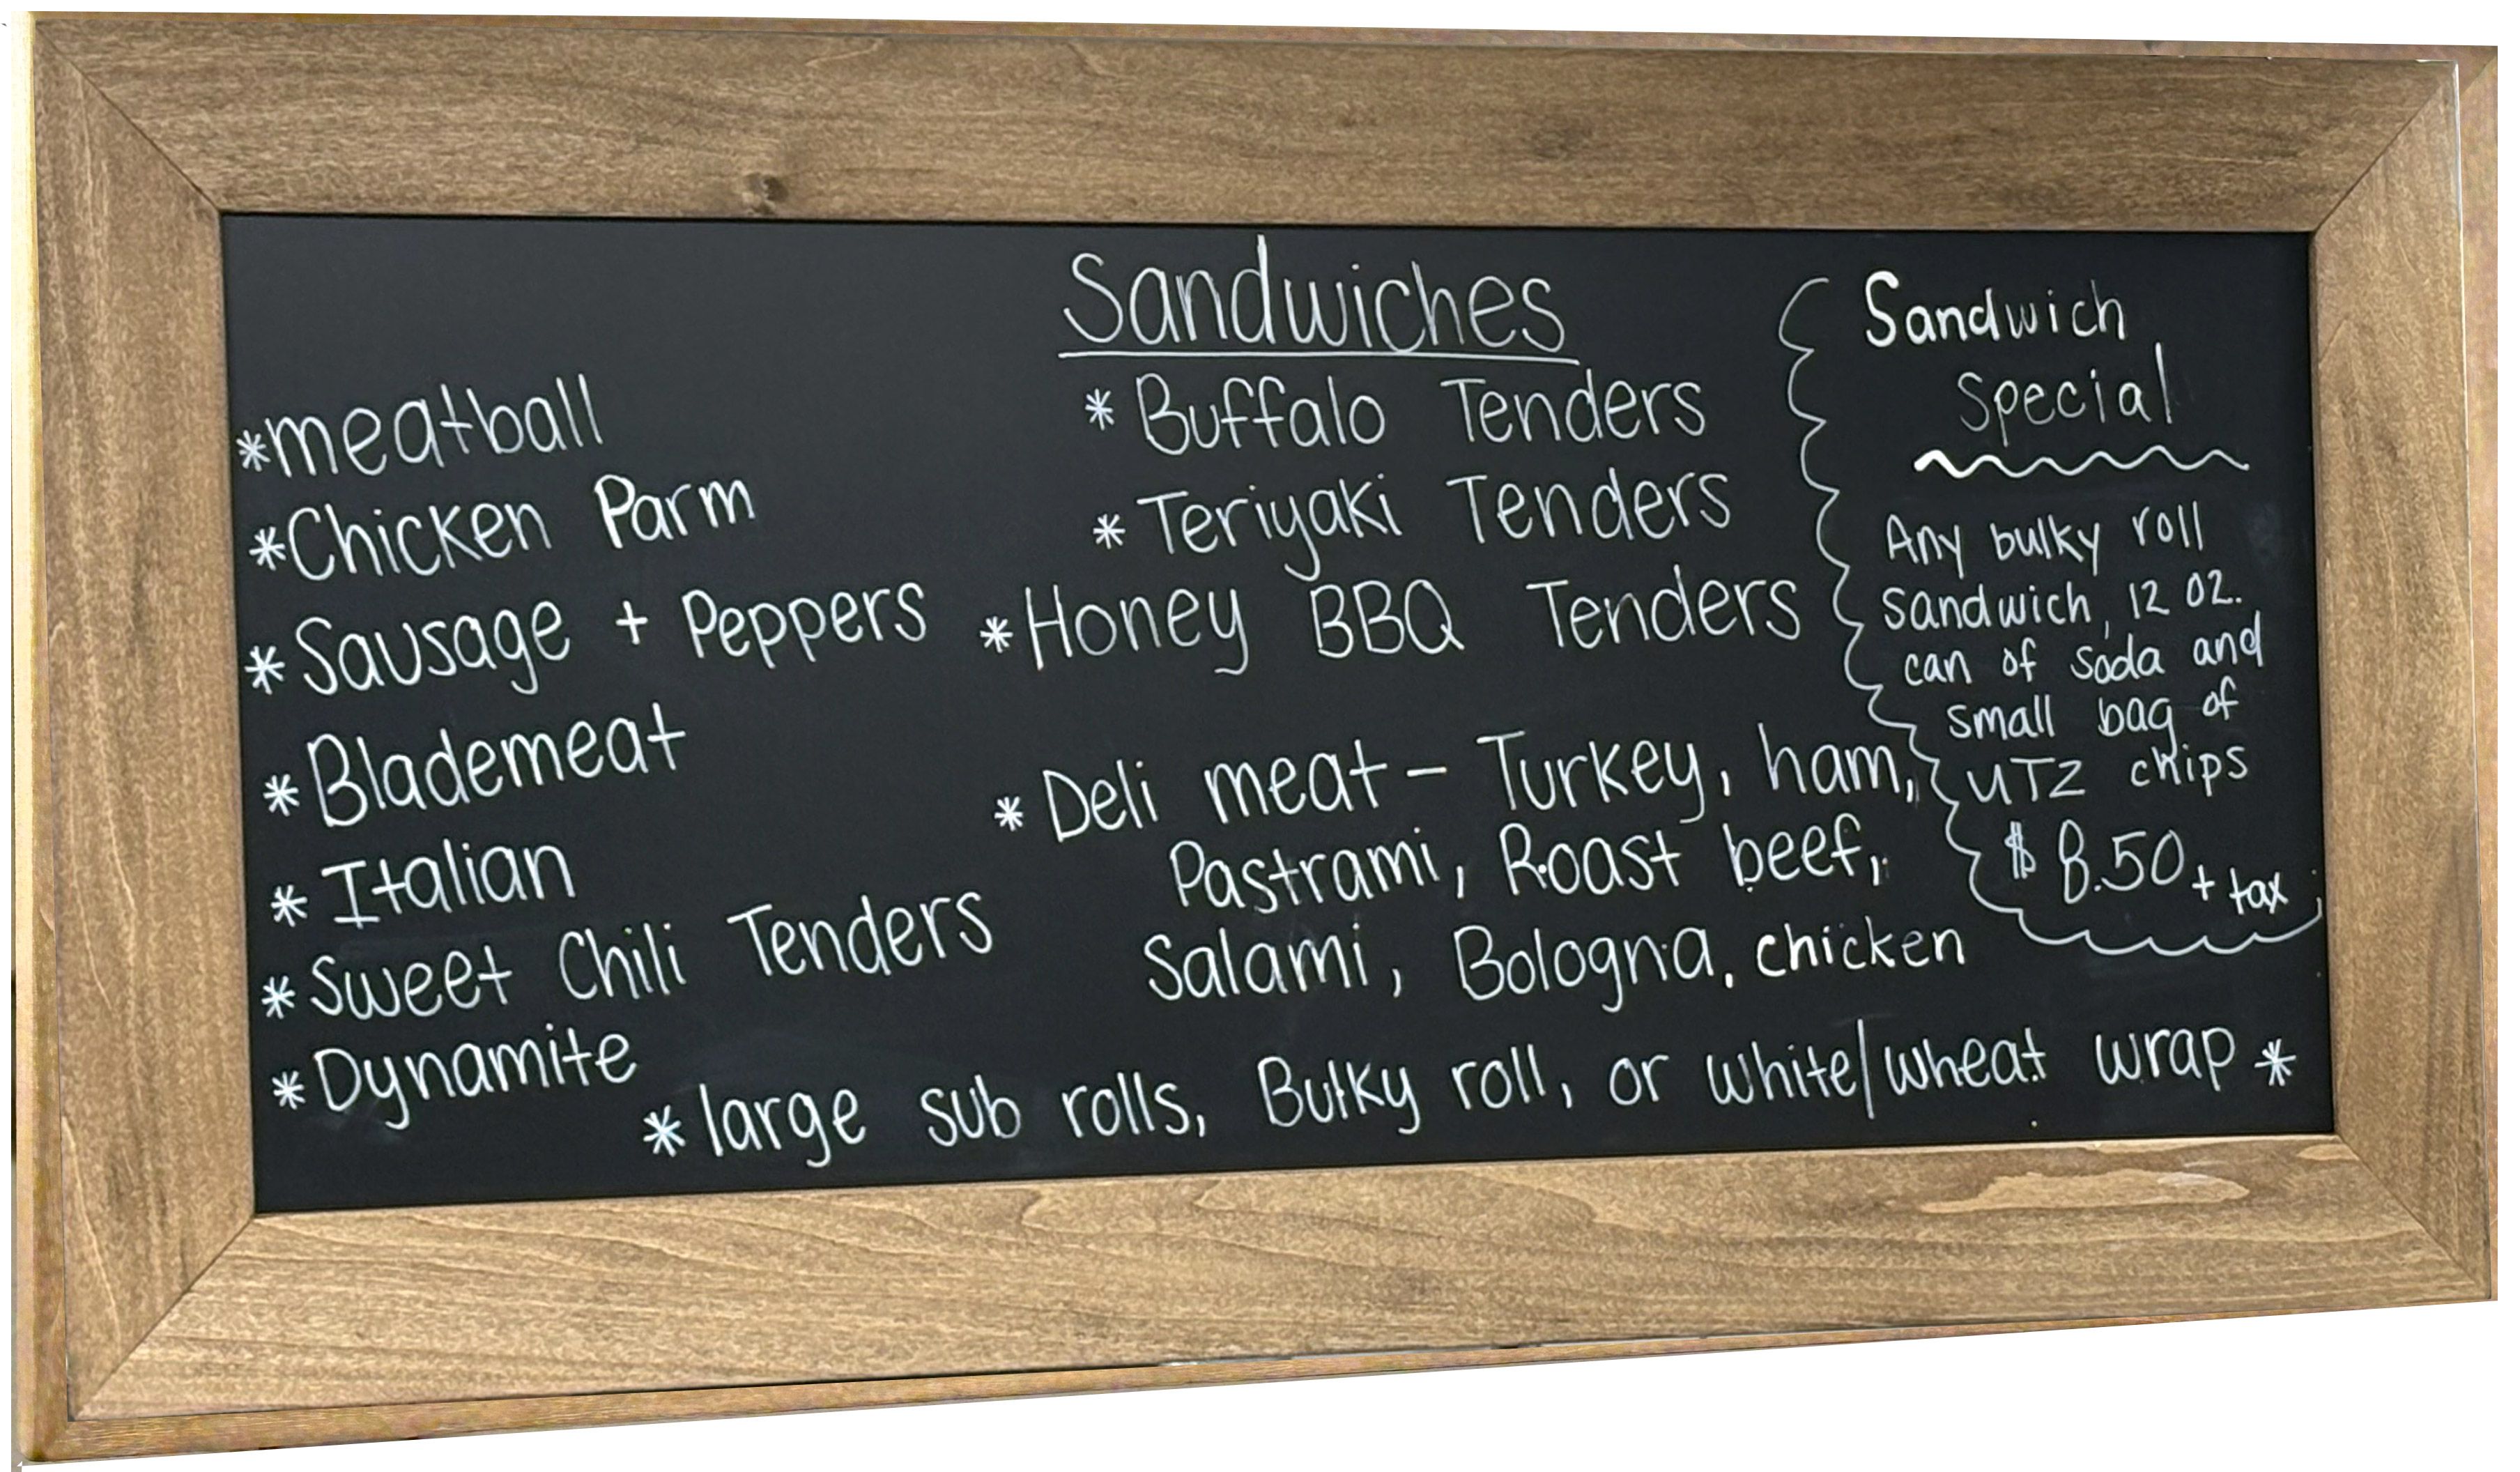 Sandwiches
*meatball
*Chicken Parm
*Sausage + Peppers
*Blademeat
*Italian
*Sweet Chili Tenders
*Dynamite
*Buffalo Tenders
*Teriyaki Tenders
*Honey BBQ Tenders
*Deli meat - Turkey, ham,
Pastrami, Roast beef,
Salami, Bologna, chicken
*large sub rolls, Bulky roll, or white/wheat wrap*
Sandwich
Special
Any bulky roll
Sandwich, 12 oz.
can of soda and
small bag of
UTZ chips
$8.50 + tax